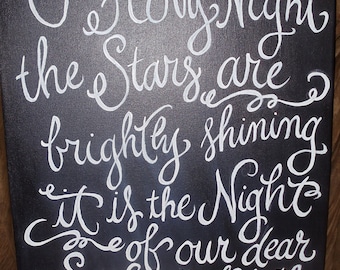 O Holy Night
the Stars are
brightly shining
it is the Night
of our dear